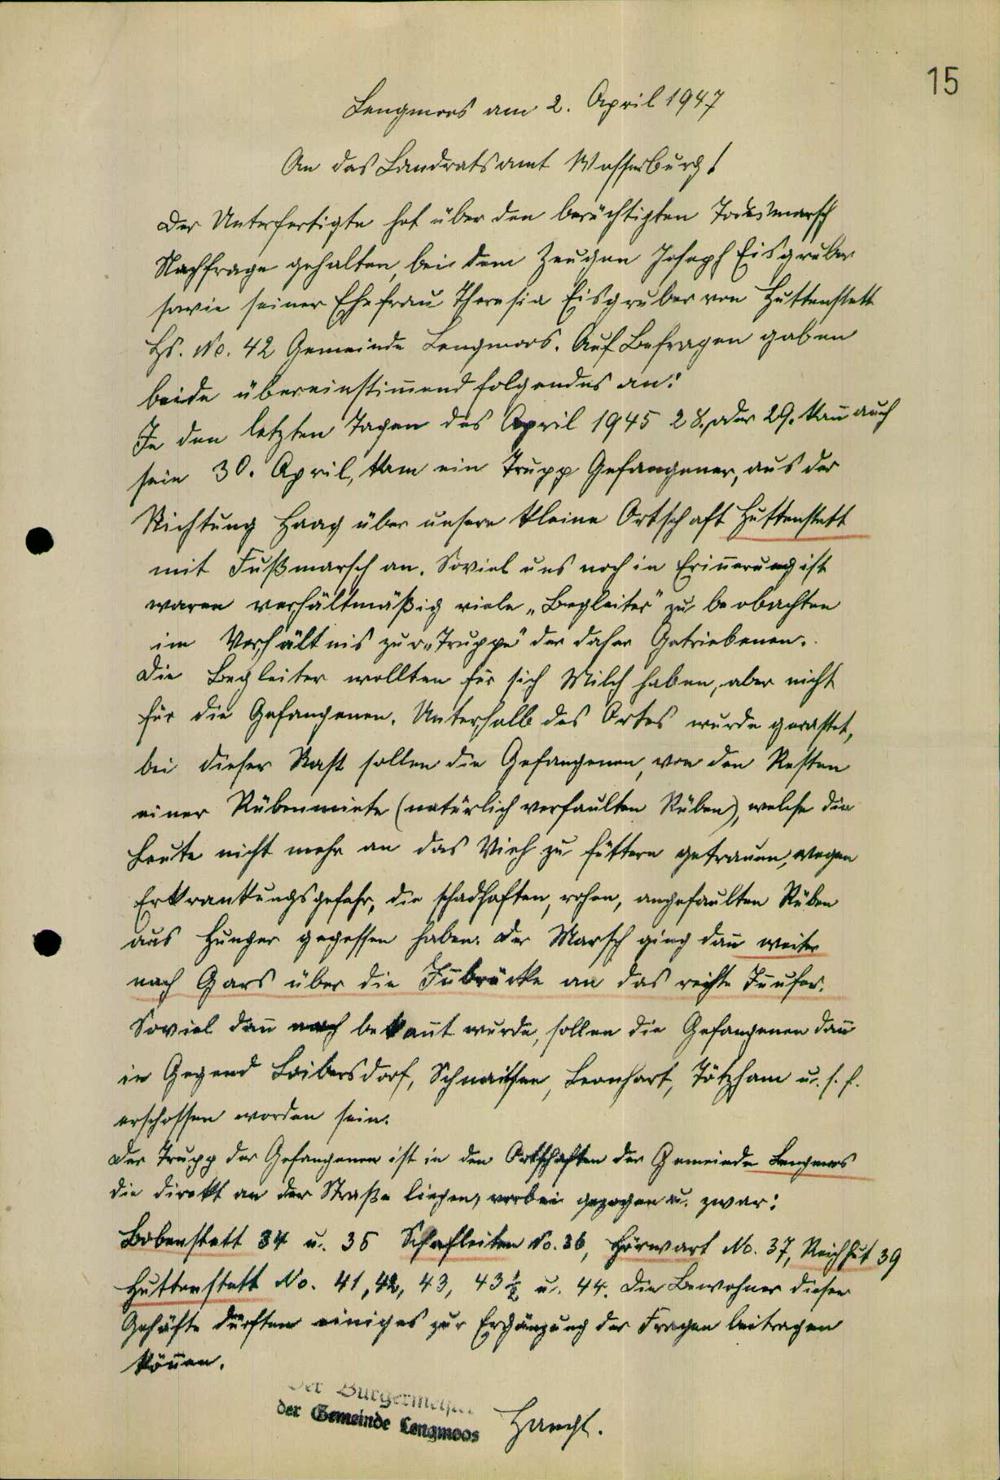 15
Lengmoos am 2. April 1947
An das Landratsamt Wasserburg!
Der Unterfertigte hat über den berüchtigten Todesmarsch
Nachfrage gehalten, bei dem Zeugen Joseph Eisgruber
sowie seiner Ehefrau Theresia Eisgruber von Huttenstett
Hs. No. 42 Gemeinde Lengmoos. Auf Befragen gaben
beide übereinstim̄end folgendes an:
In den letzten Tagen des April 1945 28. oder 29. kan̄ auch
sein 30. April, kam ein Trupp Gefangener, aus der
Richtung Haag über unsere kleine Ortschaft Huttenstett
mit Fußmarsch an. Soviel uns noch in Erin̄erung ist
waren verhältmäßig viele „Begleiter" zu beobachten
im Verhältnis zur „Truppe" der daher Getriebenen.
Die Begleiter wollten für sich Milch haben, aber nicht
für die Gefangenen. Unterhalb des Ortes wurde gerastet,
bei dieser Rast sollen die Gefangenen, von den Resten
einer Rübenmiete (natürlich verfaulten Rüben), welche die
Leute nicht mehr an das Vieh zu füttern getrauen, wegen
Erkrankungsgefahr, die schadhaften, rohen, angefaulten Rüben
aus Hunger gegessen haben. Der Marsch ging dan̄ weiter
nach Gars über die In̄brücke an das rechte In̄ufer.
Soviel dan̄ noch bekan̄t wurde, sollen die Gefangenen dan̄
in Gegend Loibersdorf, Schnaitsee, Leonhart, Tötzham u. s. f.
erschossen worden sein.
Der Trupp der Gefangenen ist in den Ortschaften der Gemeinde Lengmoos
die direkt an der Straße liegen, vorbei gezogen u. zwar:
Bobenstett 34 u. 35 Schafleiten No. 36, Hörwart No. 37, Reichhut 39
Huttenstett No. 41, 42, 43, 43 ½ u. 44. Die Bewohner dieser
Gehöfte dürften einiges zur Ergänzung der Fragen beitragen
kön̄en.
Der Bürgermeister
der Gemeinde Lengmoos